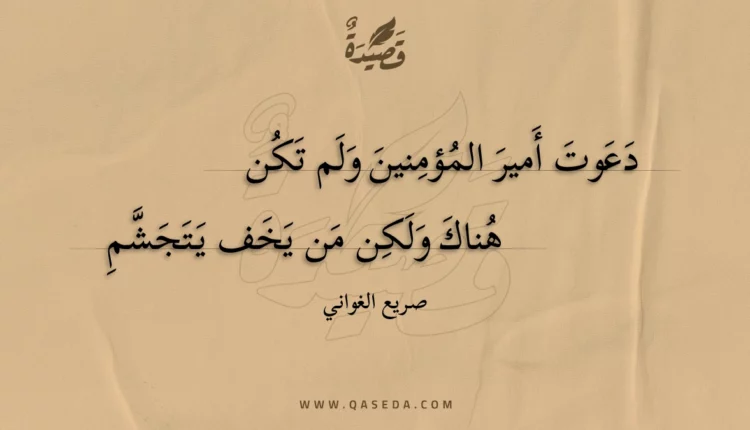 قَصِيدَةٌ
دَعَوتَ أَميرَ المُؤمِنينَ وَلَم تَكُن
هُناكَ وَلَكِن مَن يَخَف يَتَجَشَّمِ
صريع الغواني
WWW.QASEDA.COM